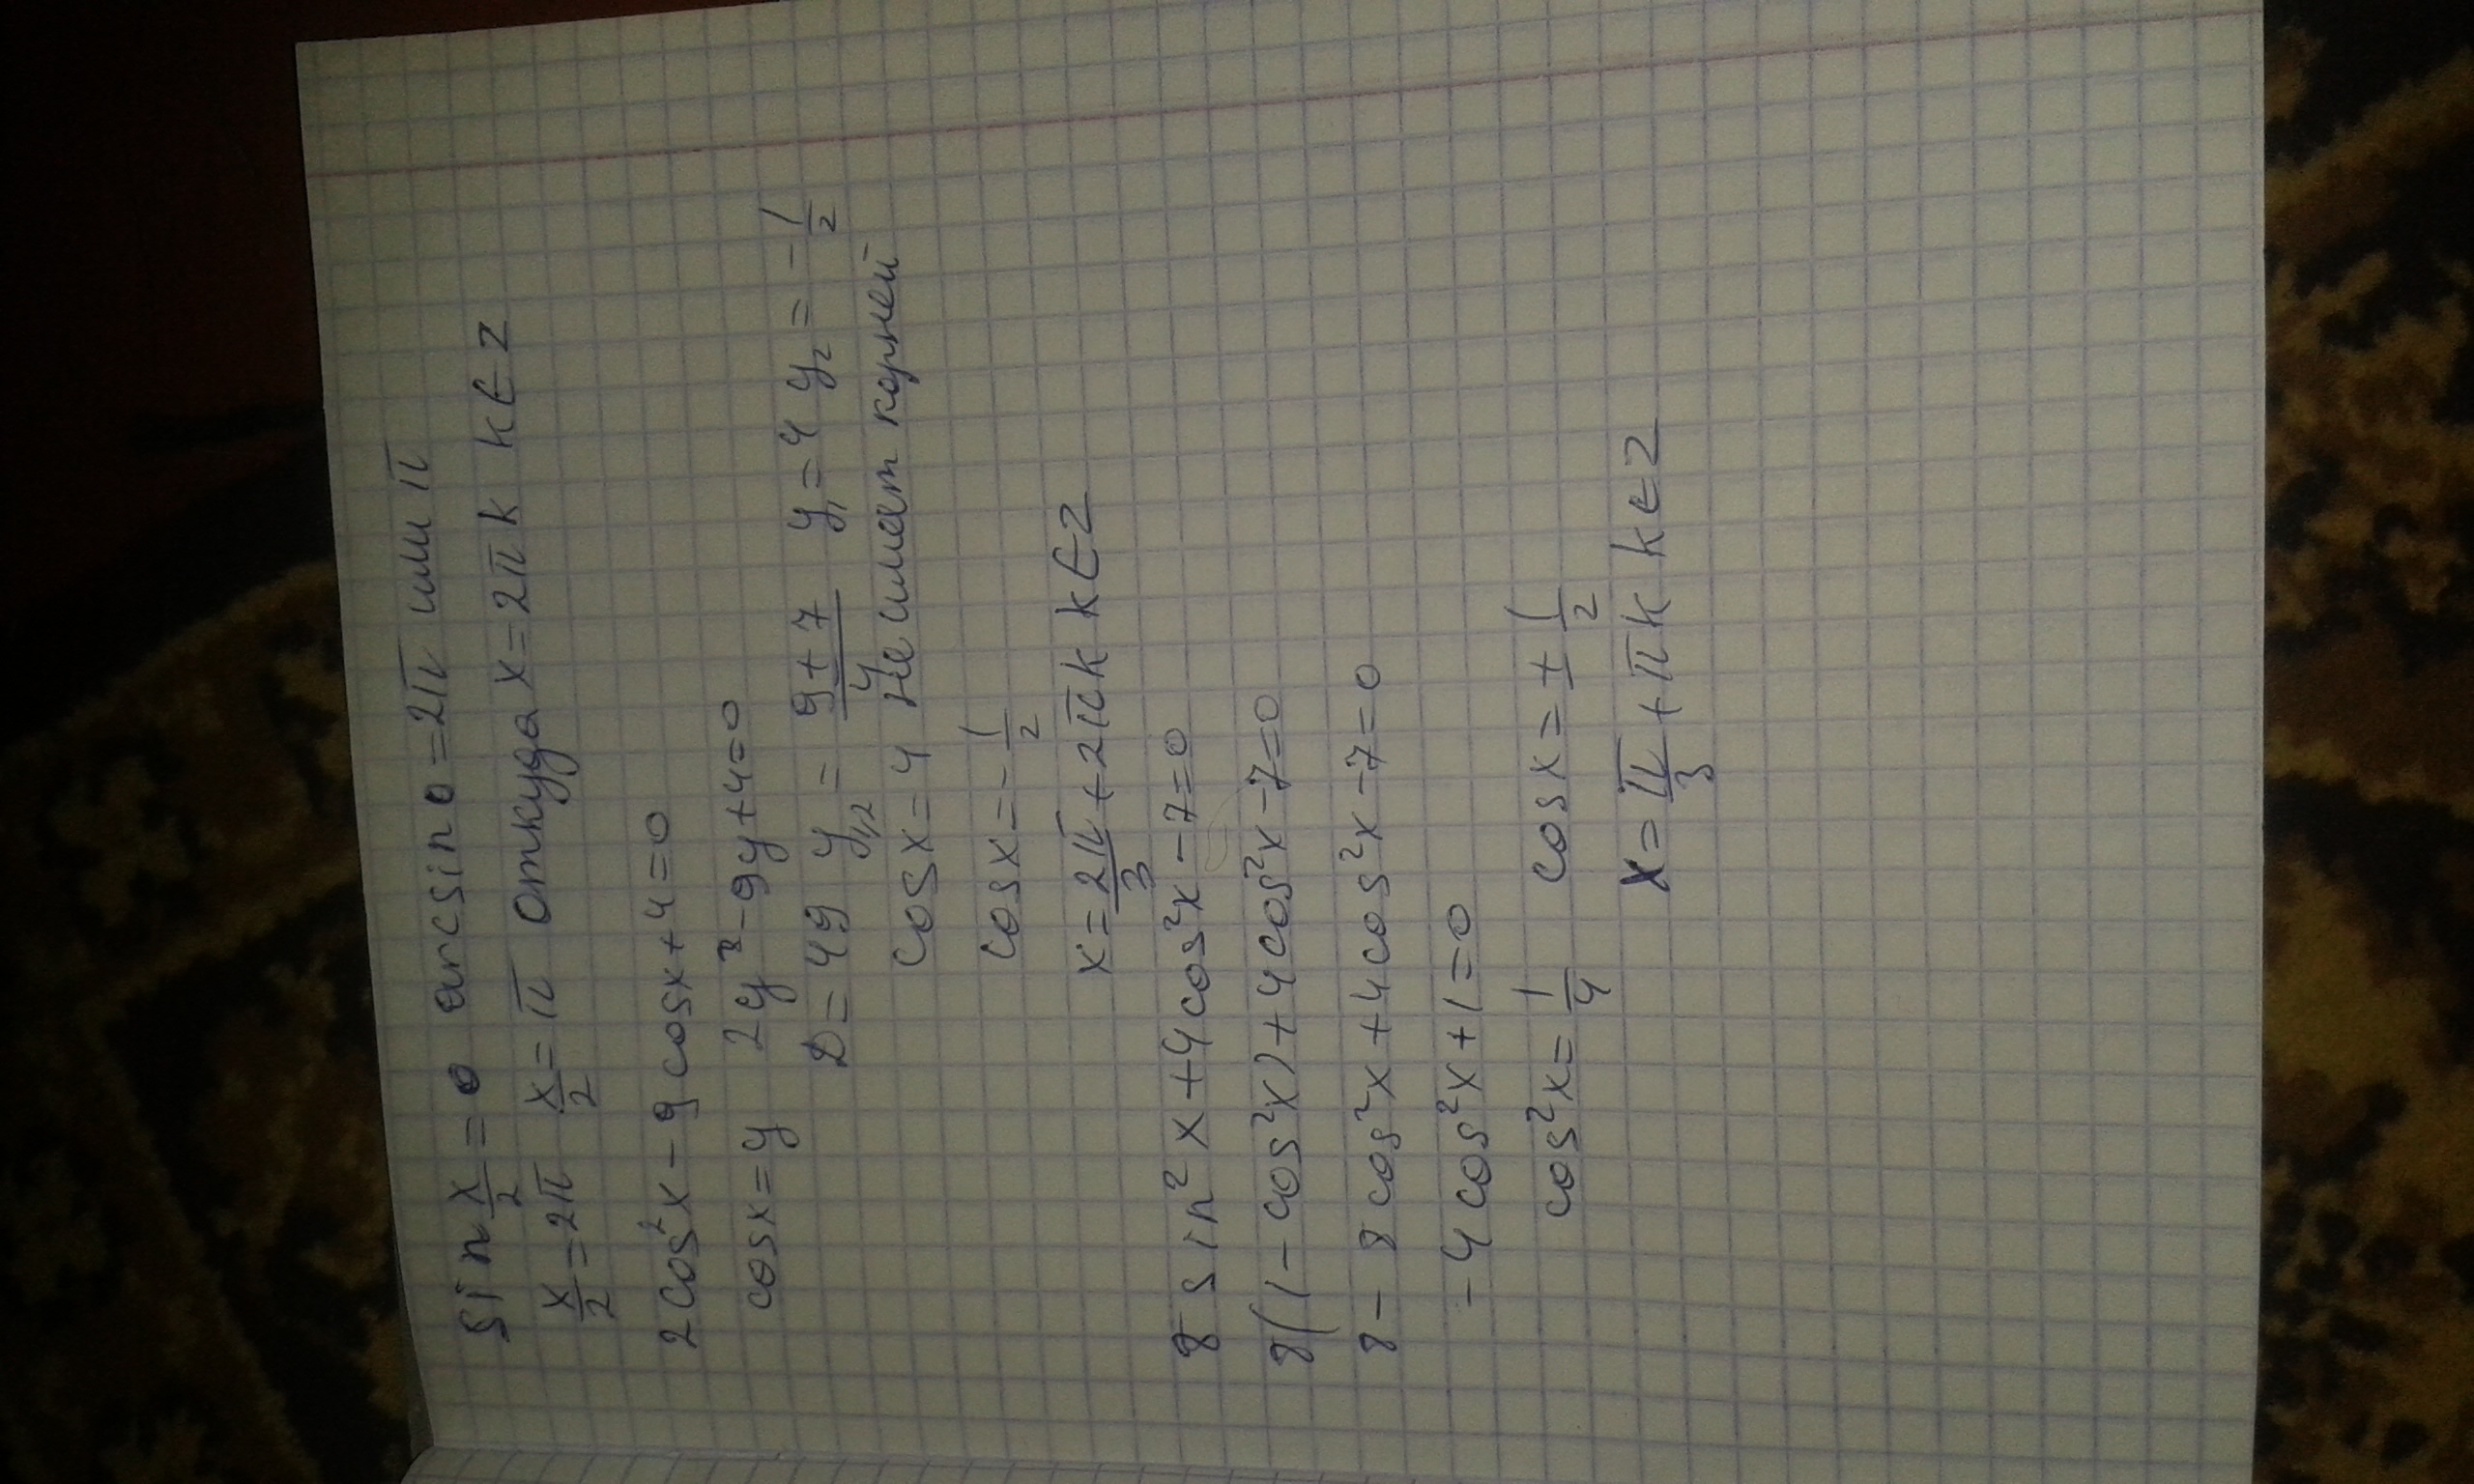 sin x/2 = 0 arcsin 0 = 2π или π
x/2 = 2π x/2 = π откуда x = 2πk k∈Z
2cos²x - 9cosx + 4 = 0
cosx = y 2y² - 9y + 4 = 0
D = 49 y₁,₂ = (9±7)/4 y₁ = 4 y₂ = -1/2
cosx = 4 не имеет корней
cosx = -1/2
x = 2π/3 + 2πk k∈Z
8 sin²x + 4cos²x - 7 = 0
8(1 - cos²x) + 4cos²x - 7 = 0
8 - 8cos²x + 4cos²x - 7 = 0
-4cos²x + 1 = 0
cos²x = 1/4 cosx = ±1/2
x = π/3 + πk k∈Z